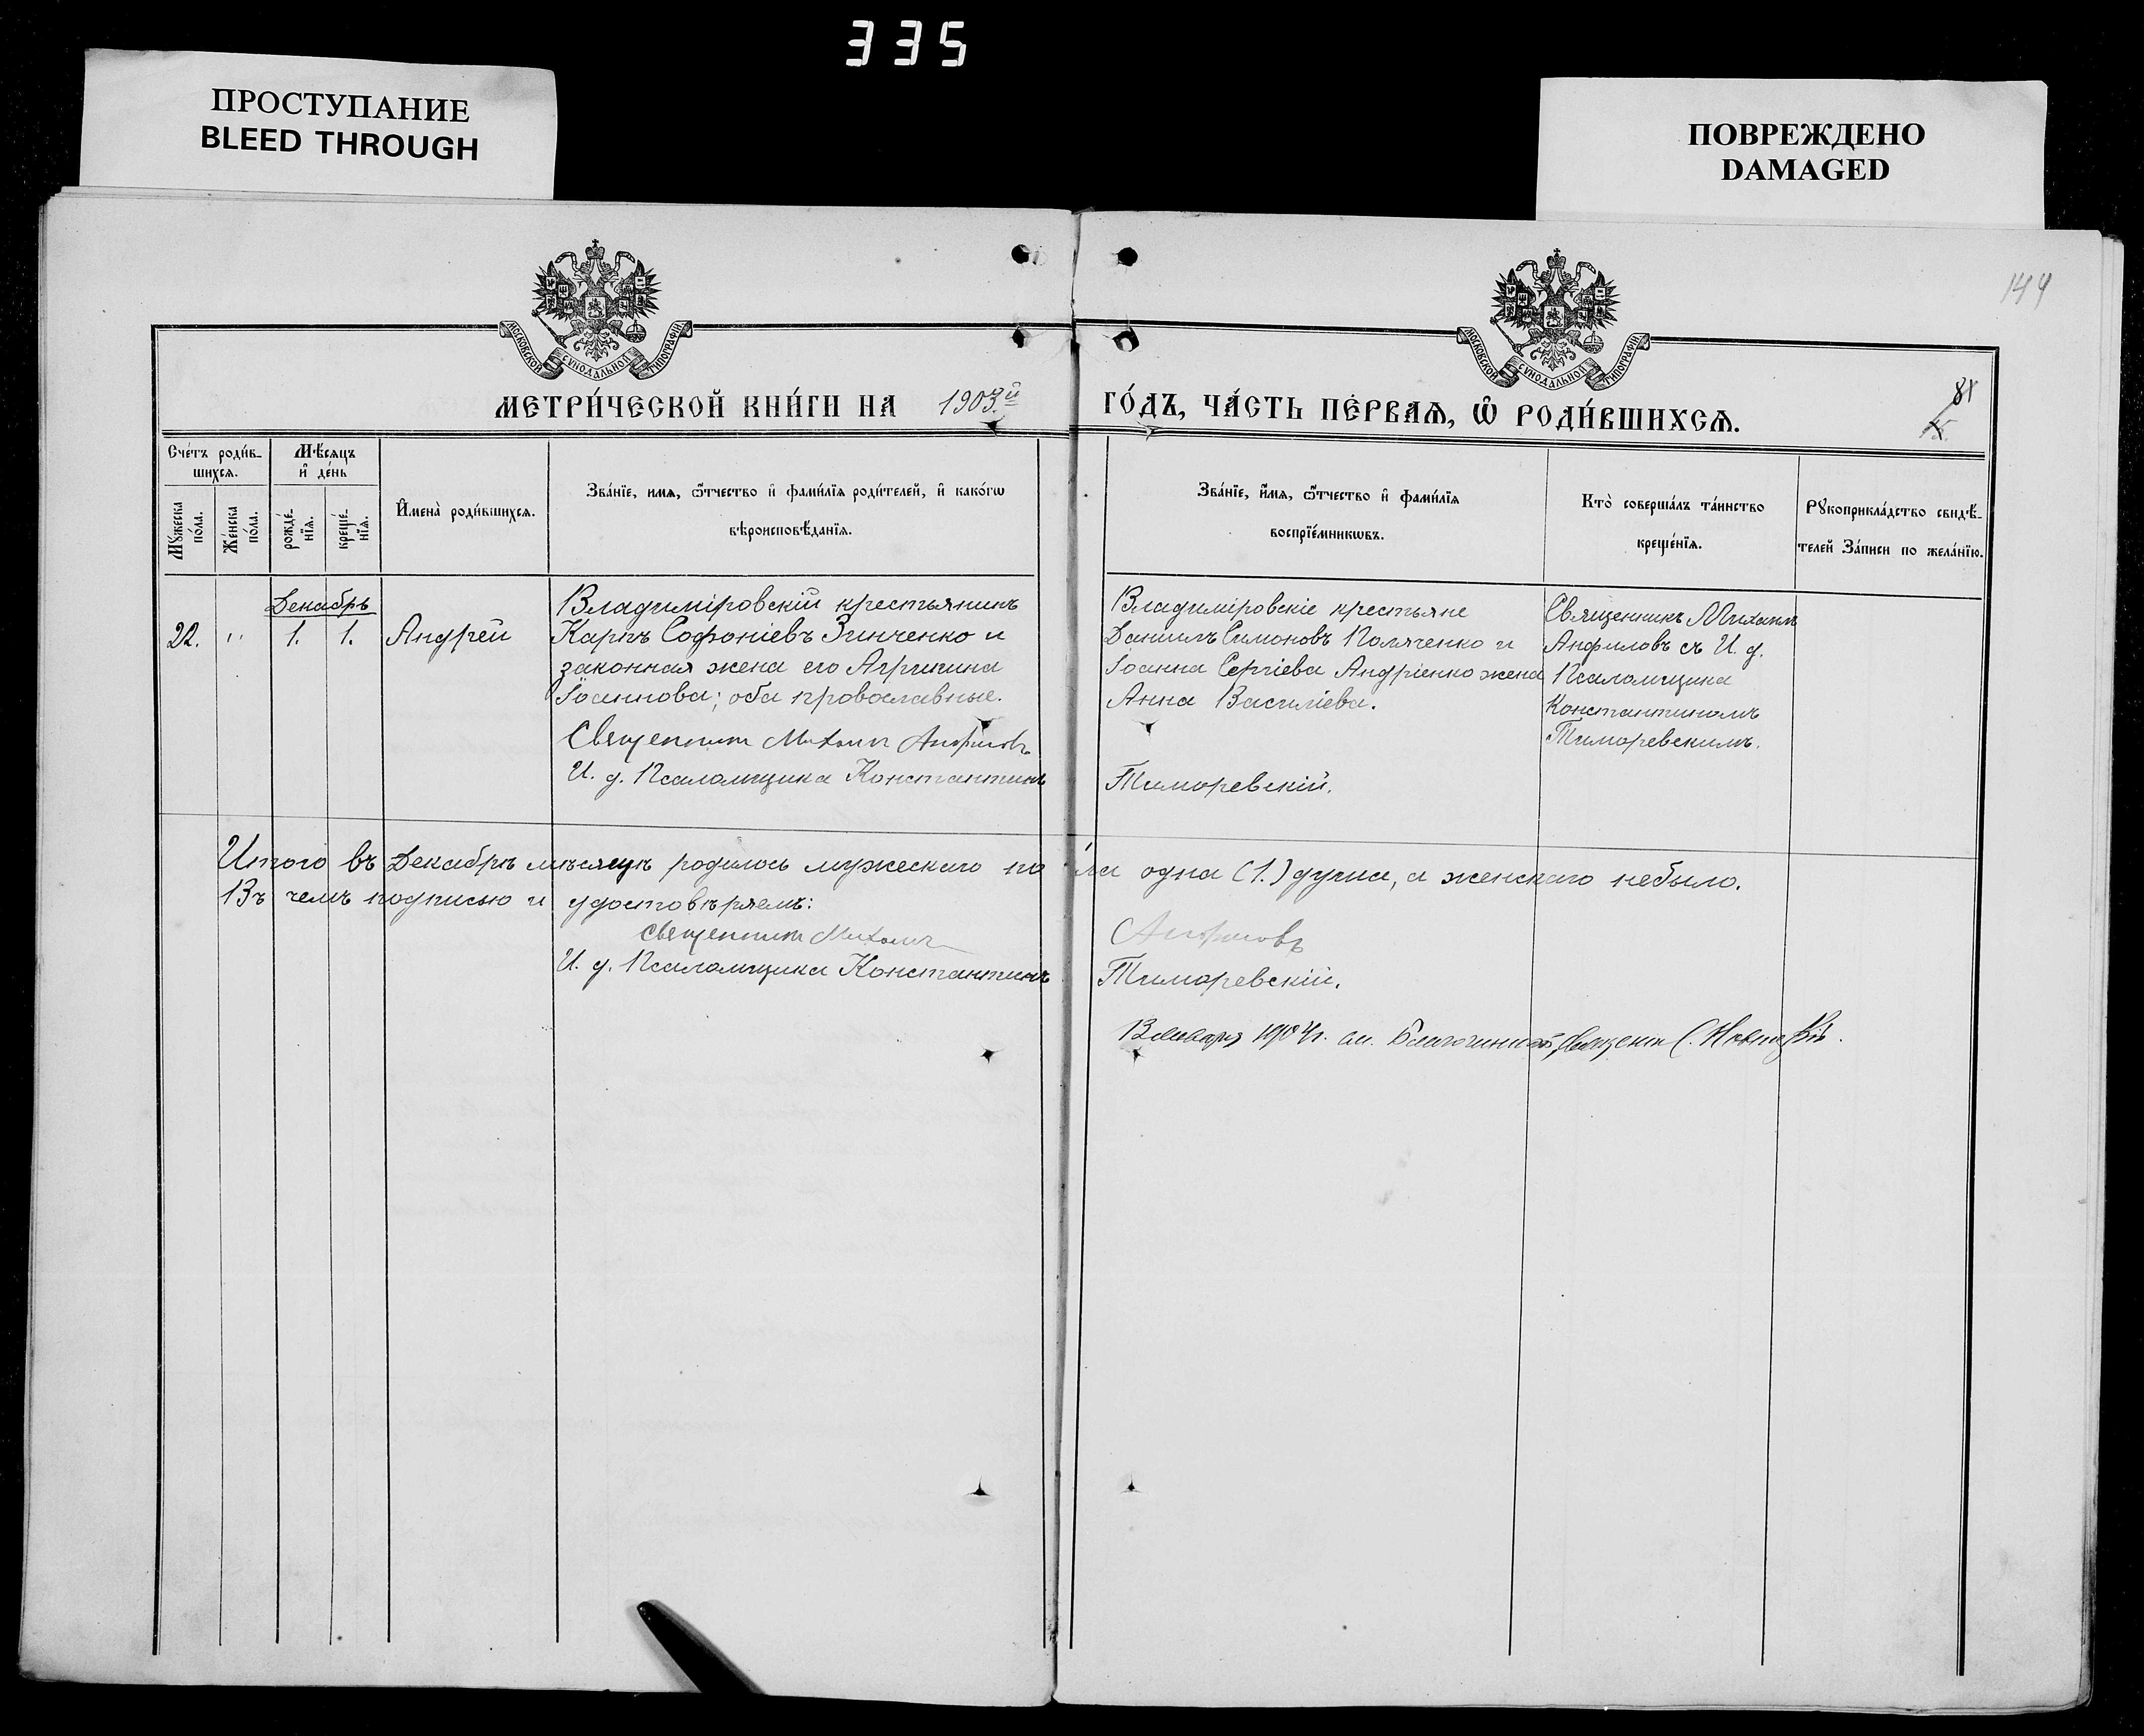 335
ПРОСТУПАНИЕ
BLEED THROUGH
ПОВРЕЖДЕНО
DAMAGED
149
МОСКОВСКОЙ СѴНОДАЛЬНОЙ ТИПОГРАФІИ
МОСКОВСКОЙ СѴНОДАЛЬНОЙ ТИПОГРАФІИ
МЕТРИ́ЧЕСКОЙ КНИ́ГИ НА 1903й
ГО́ДЪ, ЧА́СТЬ ПЕ́РВАѦ, Ѽ РОДИ́ВШИХСѦ.
81
15.
Сче́тъ роди́в-
шихсѧ.
Мѣ́сѧцъ
и҆ де́нь
Мꙋ́жеска
по́ла.
Же́нска
по́ла.
рожде́-
нїѧ.
креще́-
нїѧ.
И҆мена̀ роди́вшихсѧ.
Зва́нїе, имѧ, ѿтчество и҆ фами́лїѧ роди́телей, и҆ како́гѡ
вѣроисповѣ́данїѧ.
Зва́нїе, и҆́мѧ, ѿтчество и҆ фами́лїѧ
воспрїе́мникѡвъ.
Кто̀ соверша́лъ та́инство
креще́нїѧ.
Рꙋкоприкла́дство свидѣ́-
телей За́писи по жела́нїю.
Декабрь
22. " 1. 1. Андрей
Владиміровскій крестьянинъ
Карпъ Софоніевъ Зинченко и
законная жена его Агрипина
Іоаннова; оба православные.
Священникъ Михаилъ Анфиловъ
И. д. Псаломщика Константинъ
Тиморевскій.
Владиміровскіе крестьяне
Даніилъ Симоновъ Поляченко и
Іоанна Сергіева Андріенко жена
Анна Василіева.
Священникъ Михаилъ
Анфиловъ съ И. д.
Псаломщика
Константиномъ
Тиморевскимъ.
Итого въ Декабрѣ мѣсяцѣ родилось мужескаго пола одна (1.) душа, а женскаго небыло.
Въ чемъ подписью и удостовѣряемъ:
Священникъ Михаилъ Анфиловъ
И. д. Псаломщика Константинъ Тиморевскій.
января 1904 г. Благочинный, Священ. С.